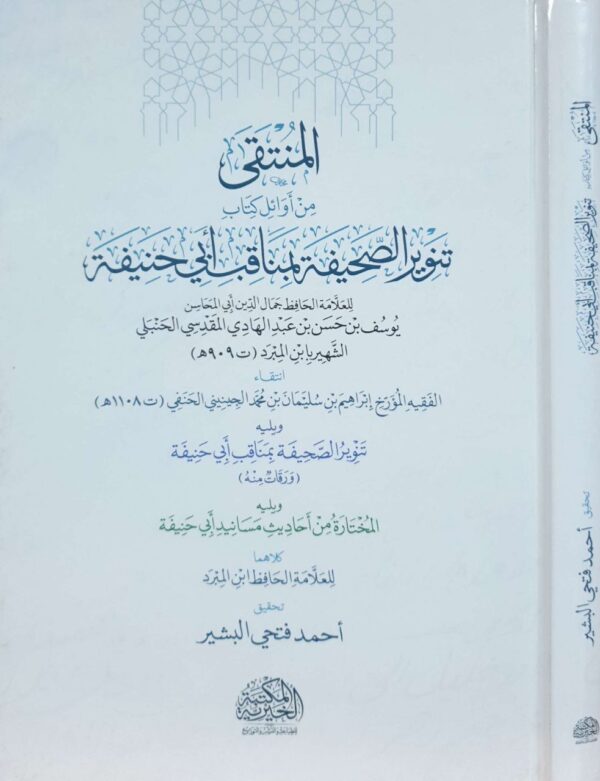 المُنتَقى
مِنْ أَوَائِلِ كِتَابِ
تَنْوِيرُ الصَّحِيفَةِ بِمَنَاقِبِ أَبِي حَنِيفَةَ
لِلعَلَّامَة الحَافِظ جَمَال الدِّين أَبِي المَحَاسِن
يُوسُف بْن حَسَن بْن عَبْد الهَادِي المَقْدِسِي الحَنْبَلِي
الشَّهِير بِابْنِ المِبْرَد (ت ٩٠٩هـ)
انتقاء
الفَقِيه المُؤَرِّخ إِبْرَاهِيم بْن سُلَيْمَان بْن مُحَمَّد الجِينِينِي الحَنَفِي (ت ١١٠٨هـ)
ويليه
تَنْوِيرُ الصَّحِيفَةِ بِمَنَاقِبِ أَبِي حَنِيفَةَ
(وَرَقَاتٌ مِنْهُ)
ويليه
المُخْتَارَةُ مِنْ أَحَادِيثِ مَسَانِيدِ أَبِي حَنِيفَةَ
كلاهما
لِلعَلَّامَةِ الحَافِظِ ابْنِ المِبْرَد
تحقيق
أحمد فتحي البشير
المكتبة
الخيرية
للطباعة والنشر والتوزيع
المُنتَقى
مِنْ أَوَائِلِ كِتَابِ
تَنْوِيرُ الصَّحِيفَةِ بِمَنَاقِبِ أَبِي حَنِيفَةَ
تحقيق
أحمد فتحي البشير
المكتبة
الخيرية